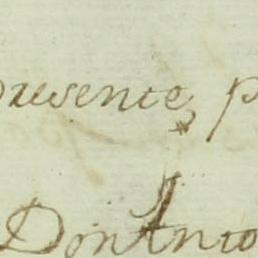 presente, p
Don Anto